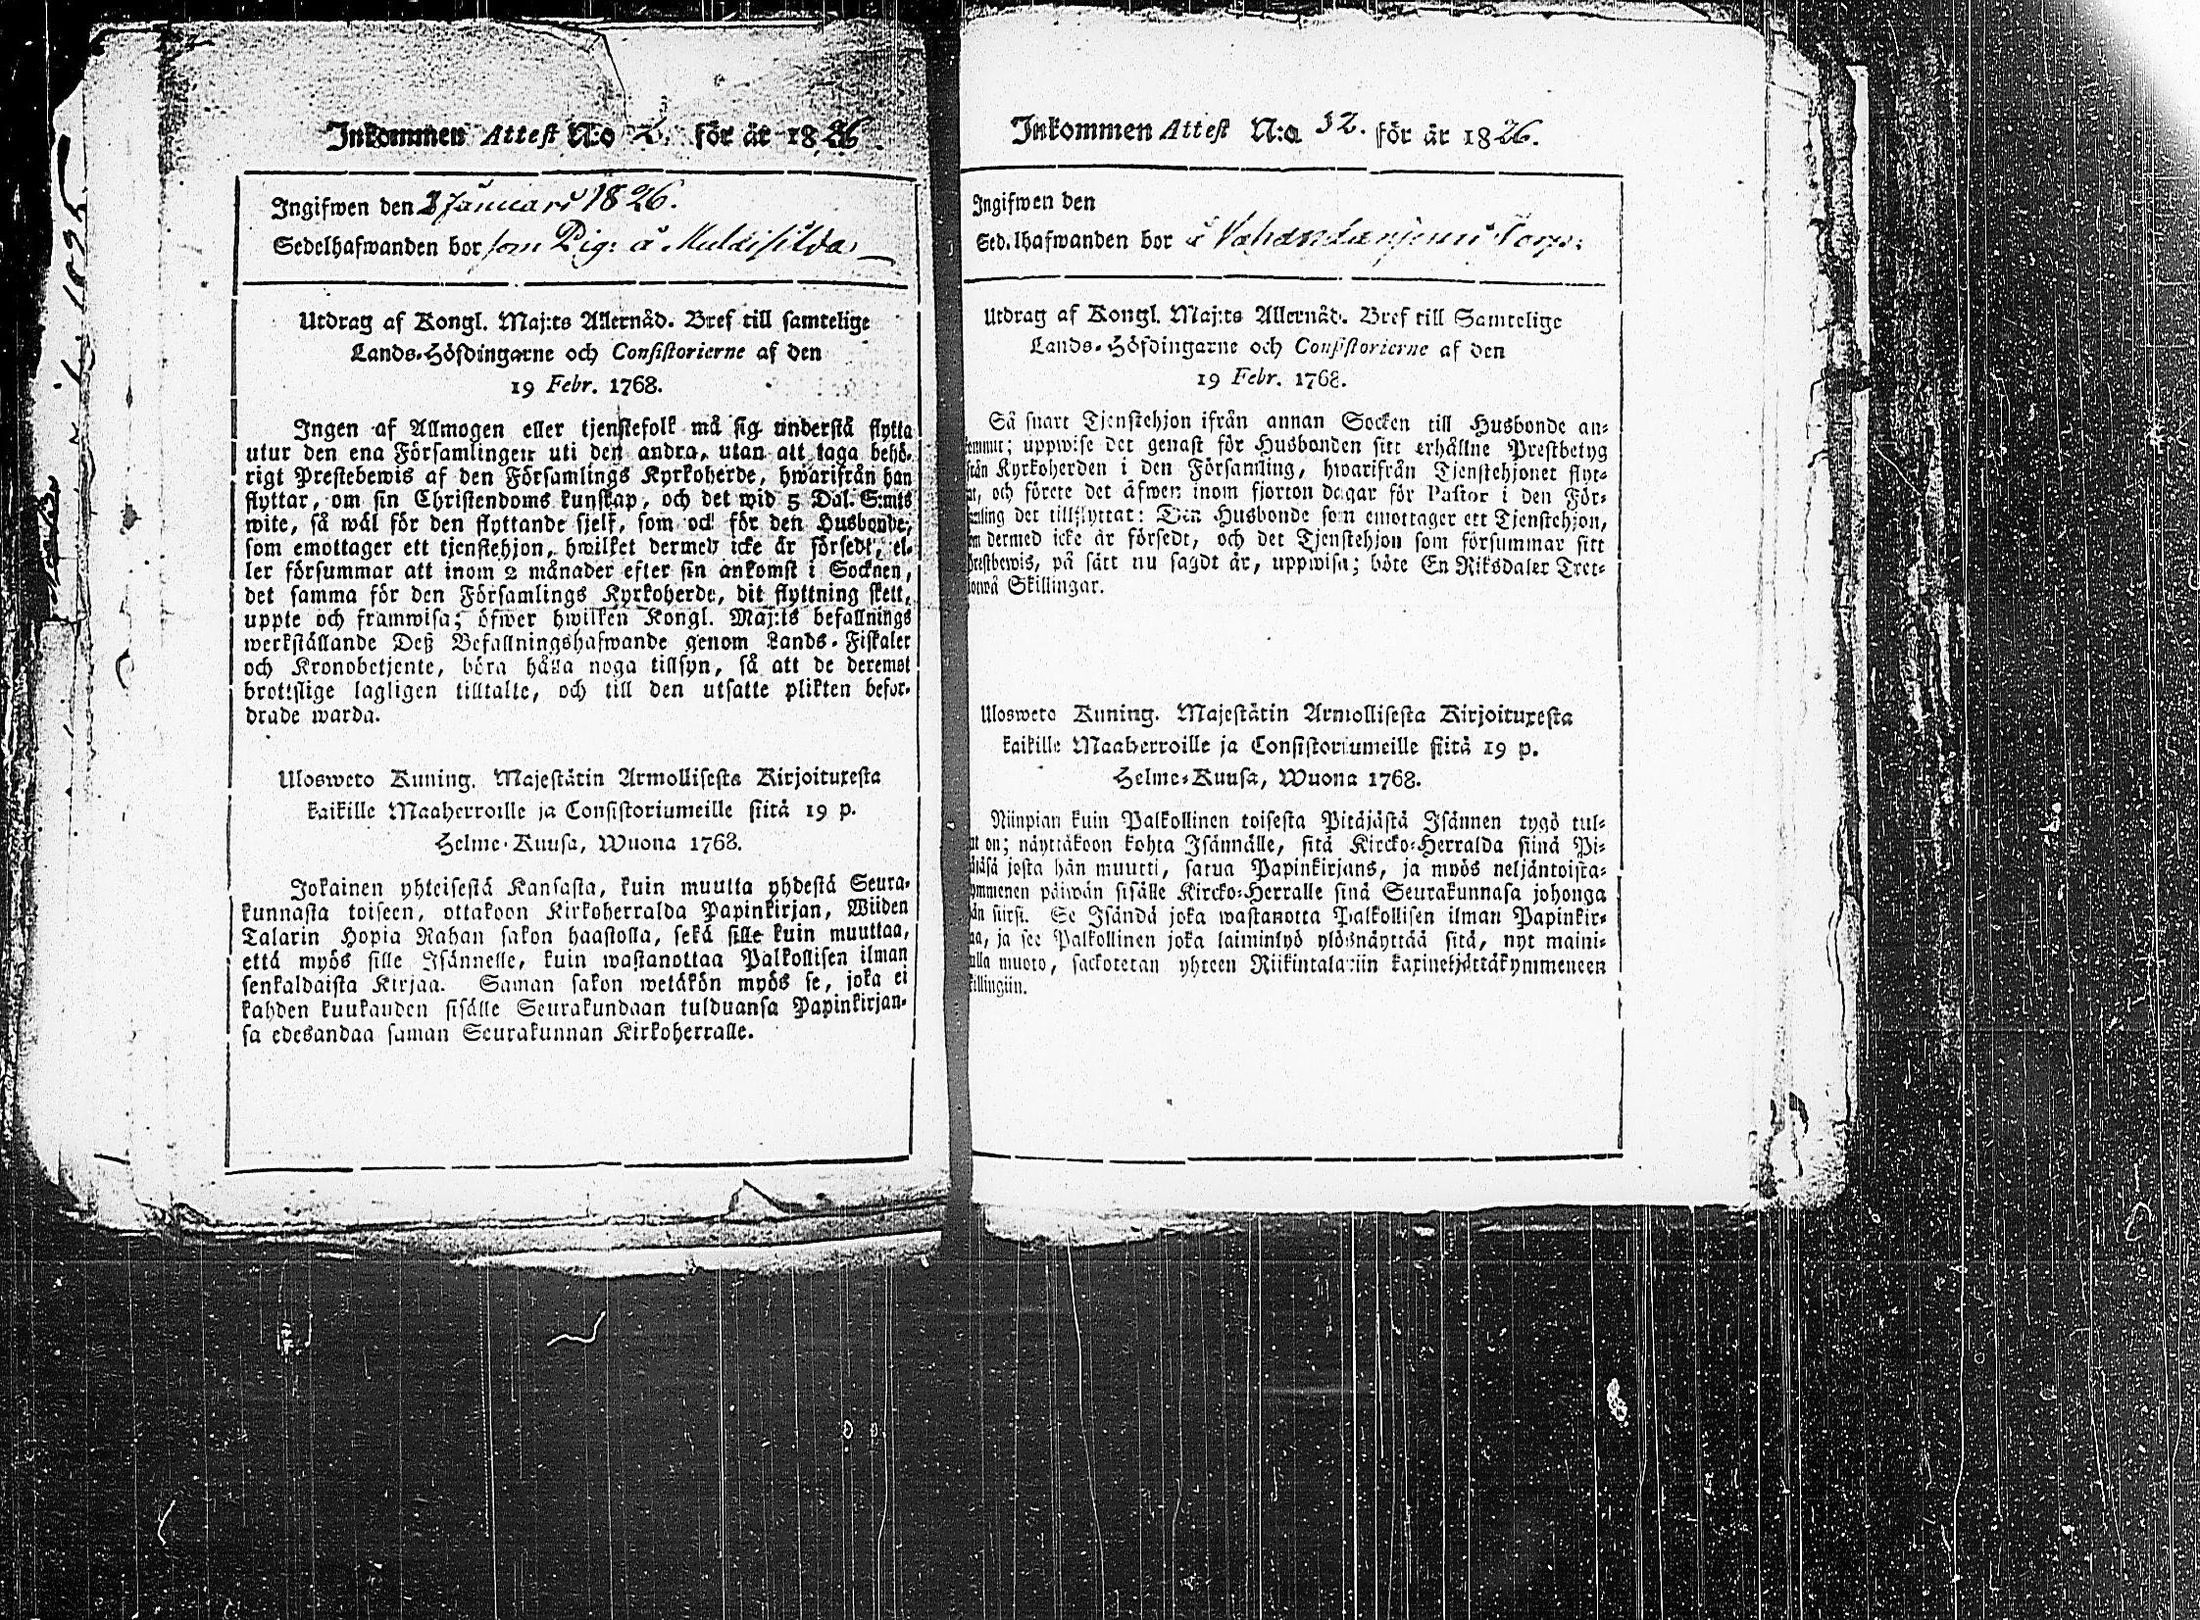 Inkommen Attest N:o 2. för år 1826.
Ingifwen den 3 Januari 1826.
Sedelhafwanden bor som Pig: å
Utdrag af Kongl. Maj:ts Allernåd. Bref till samtelige
Lands-Höfdingarne och Consistorierne af den
19 Febr. 1768.
Ingen af Allmogen eller tjenstefolk må sig understå flytta
utur den ena Församlingen uti den andra, utan att taga behö-
rigt Prestebewis af den Församlings Kyrkoherde, hwarifrån han
flyttar, om sin Christendoms kunskap, och det wid 5 Dal. S:mts
wite, så wäl för den flyttande sjelf, som ock för den Husbonde,
som emottager ett tjenstehjon, hwilket dermed icke är försedt, el-
ler försummar att inom 2 månader efter sin ankomst i Socknen,
det samma för den Församlings Kyrkoherde, dit flyttning skett,
uppte och framwisa; öfwer hwilken Kongl. Maj:ts befallnings
werkställande Deß Befallningshafwande genom Lands-Fiskaler
och Kronobetjente, böra hålla noga tillsyn, så att de deremot
brottslige lagligen tilltalte, och till den utsatte plikten befor-
drade warda.
Ulosweto Kuning. Majestätin Armollisesta Kirjoituxesta
kaikille Maaherroille ja Consistoriumeille siitä 19 p.
Helme-Kuusa, Wuona 1768.
Jokainen yhteisestä Kansasta, kuin muutta yhdestä Seura-
kunnasta toiseen, ottakoon Kirkoherralda Papinkirjan, Wiiden
Talarin Hopia Rahan sakon haastolla, sekä sille kuin muuttaa,
että myös sille Isännelle, kuin wastanottaa Palkollisen ilman
senkaldaista Kirjaa. Saman sakon wetäkön myös se, joka ei
kahden kuukauden sisälle Seurakundaan tulduansa Papinkirjan-
sa edesandaa saman Seurakunnan Kirkoherralle.
Inkommen Attest N:o 32. för år 1826.
Ingifwen den
Sedelhafwanden bor å Torp:
Utdrag af Kongl. Maj:ts Allernåd. Bref till Samtelige
Lands-Höfdingarne och Consistorierne af den
19 Febr. 1768.
Så snart Tjenstehjon ifrån annan Socken till Husbonde an-
kommit; uppwise det genast för Husbonden sitt erhållne Prestbetyg
från Kyrkoherden i den Församling, hwarifrån Tjenstehjonet flyt-
tat, och förete det äfwen inom fjorton dagar för Pastor i den För-
samling det tillflyttat: Den Husbonde som emottager ett Tjenstehjon,
som dermed icke är försedt, och det Tjenstehjon som försummar sitt
Prestbewis, på sätt nu sagdt är, uppwisa; böte En Riksdaler Tret-
tontwå Skillingar.
Ulosweto Kuning. Majestätin Armollisesta Kirjoituxesta
kaikille Maaherroille ja Consistoriumeille siitä 19 p.
Helme-Kuusa, Wuona 1768.
Niinpian kuin Palkollinen toisesta Pitäjästä Isännen tygö tul-
lut on; näyttäkoon kohta Isännälle, sitä Kircko-Herralda siinä Pi-
täjäsä josta hän muutti, satua Papinkirjans, ja myös neljäntoista-
kymmenen päiwän sisälle Kircko-Herralle sinä Seurakunnasa johonga
hän siirsi. Se Isändä joka wastanotta Palkollisen ilman Papinkir-
jaa, ja see Palkollinen joka laiminlyö ylösnäyttää sitä, nyt maini-
tulla muoto, sackotetan yhteen Riikintalariin kaxinekjättäkymmeneen
killingiin.